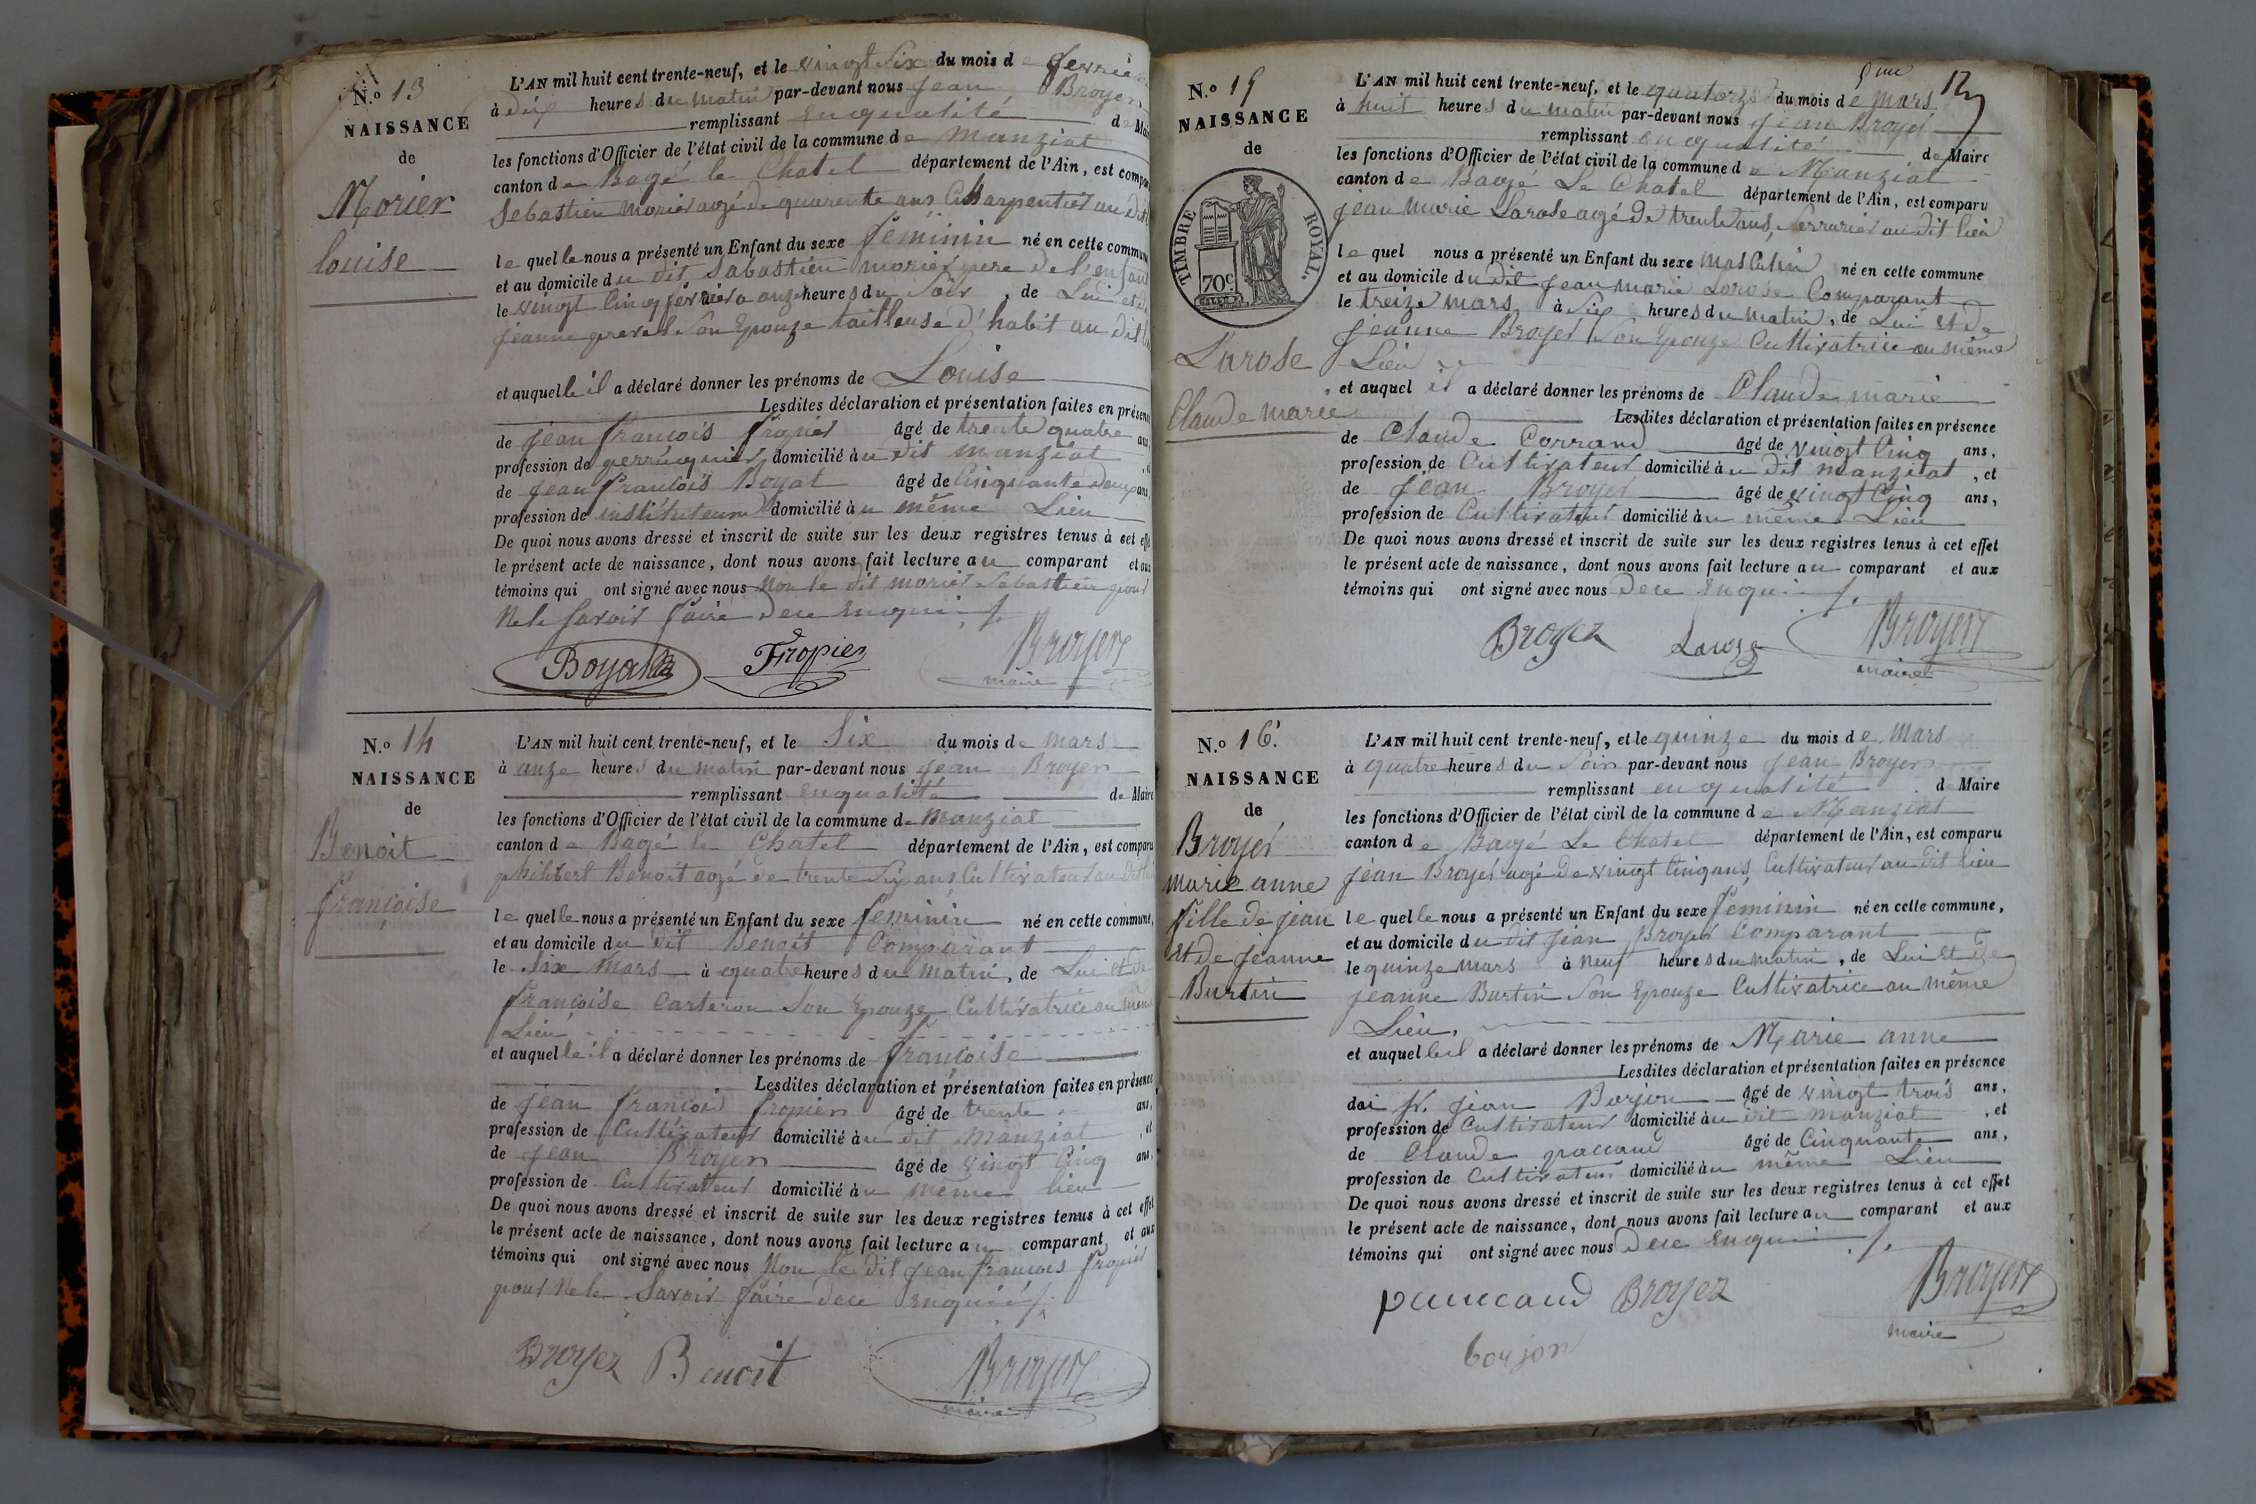 N.o 13
NAISSANCE
de
Morier
Louise
L'AN mil huit cent trente-neuf, et le vingt six du mois de fevrier
à dix heures du matin par-devant nous Jean Broyer
remplissant en qualité de Maire
les fonctions d'Officier de l'état civil de la commune de Manziat
canton de Bagé le Chatel département de l'Ain, est comparu
Sebastien Morier agé de quarente ans Charpentier au dit
le quel le nous a présenté un Enfant du sexe féminin né en cette commune
et au domicile du dit Sabastien morier pere de l'enfant
le vingt cinq février a onze heures du Soir, de Lui et de
jeanne prevel Son Epouze tailleuse d'habit au dit
et auquelle il a déclaré donner les prénoms de Louise
Lesdites déclaration et présentation faites en présence
de jean francois fropier âgé de trente quatre ans
profession de perruquier domicilié au dit manziat
de jean francois Boyat âgé de Cinquante deux ans,
profession de instituteur domicilié au même Lieu
De quoi nous avons dressé et inscrit de suite sur les deux registres tenus à cet effet
le présent acte de naissance, dont nous avons fait lecture au comparant et aux
témoins qui ont signé avec nous Non le dit morier Sabastien pour
Ne le Savoir faire de ce Enquis
Boyat Fropier Broyer
maire
N.o 14
NAISSANCE
de
Benoit
françoise
L'AN mil huit cent trente-neuf, et le Six du mois de mars
à onze heures du matin par-devant nous Jean Broyer
remplissant en qualité de Maire
les fonctions d'Officier de l'état civil de la commune de Manziat
canton de Bagé le Chatel département de l'Ain, est comparu
philibert Benoit agé de trente Six ans Cultivateur au dit
le quel le nous a présenté un Enfant du sexe feminin né en cette commune,
et au domicile du dit Benoit Comparant
le Six mars à quatre heures du matin, de Lui et de
françoise Carteron Son Epouze Cultivatrice au même
Lieu
et auquelle il a déclaré donner les prénoms de françoise
Lesdites déclaration et présentation faites en présence
de jean francois fropier âgé de trente ans,
profession de Cultivateur domicilié au dit Manziat, et
de jean Broyer âgé de vingt Cinq ans,
profession de Cultivateur domicilié au même lieu
De quoi nous avons dressé et inscrit de suite sur les deux registres tenus à cet effet
le présent acte de naissance, dont nous avons fait lecture au comparant et aux
témoins qui ont signé avec nous Non le dit jean francois fropier
pour Ne le Savoir faire de ce enquis
Broyer Benoit Broyer
maire
N.o 15
NAISSANCE
de
TIMBRE ROYAL.
70c
Larose
Claude marie
L'AN mil huit cent trente-neuf, et le quatorze du mois de mars
à huit heures du matin par-devant nous Jean Broyer
remplissant en qualité de Maire
les fonctions d'Officier de l'état civil de la commune de Manziat
canton de Bagé Le Chatel département de l'Ain, est comparu
jean Marie Larose agé de trente ans, Serrurier au dit lieu
le quel nous a présenté un Enfant du sexe masculin né en cette commune
et au domicile du dit jean marie Larose Comparant
le treize mars à Six heures du matin, de Lui et de
jeanne Broyer Son Epouze Cultivatrice au même
Lieu
et auquel il a déclaré donner les prénoms de Claude marie
Lesdites déclaration et présentation faites en présence
de Claude Corrand âgé de vingt Cinq ans,
profession de Cultivateur domicilié au dit manziat, et
de Jean Broyer âgé de vingt Cinq ans,
profession de Cultivateur domicilié au même Lieu
De quoi nous avons dressé et inscrit de suite sur les deux registres tenus à cet effet
le présent acte de naissance, dont nous avons fait lecture au comparant et aux
témoins qui ont signé avec nous de ce Enquis
Broyer Laroze Broyer
maire
N.o 16.
NAISSANCE
de
Broyer
marie anne
fille de jean
et de jeanne
Burtin
L'AN mil huit cent trente-neuf, et le quinze du mois de Mars
à quatre heures du Soir par-devant nous Jean Broyer
remplissant en qualité de Maire
les fonctions d'Officier de l'état civil de la commune de Manziat
canton de Bagé Le Chatel département de l'Ain, est comparu
jean Broyer agé de vingt Cinq ans, Cultivateur au dit lieu
le quel le nous a présenté un Enfant du sexe féminin né en cette commune,
et au domicile du dit jean Broyer Comparant
le quinze mars à neuf heures du matin, de Lui et de
jeanne Burtin Son Epouze Cultivatrice au même
Lieu.
et auquelle il a déclaré donner les prénoms de Marie anne
Lesdites déclaration et présentation faites en présence
jean Borjon âgé de vingt trois ans,
profession de Cultivateur domicilié au dit manziat, et
de Claude paccaud âgé de Cinquante ans,
profession de Cultivateur domicilié au même Lieu
De quoi nous avons dressé et inscrit de suite sur les deux registres tenus à cet effet
le présent acte de naissance, dont nous avons fait lecture au comparant et aux
témoins qui ont signé avec nous de ce Enquis
Broyer Broyer
maire
borjon